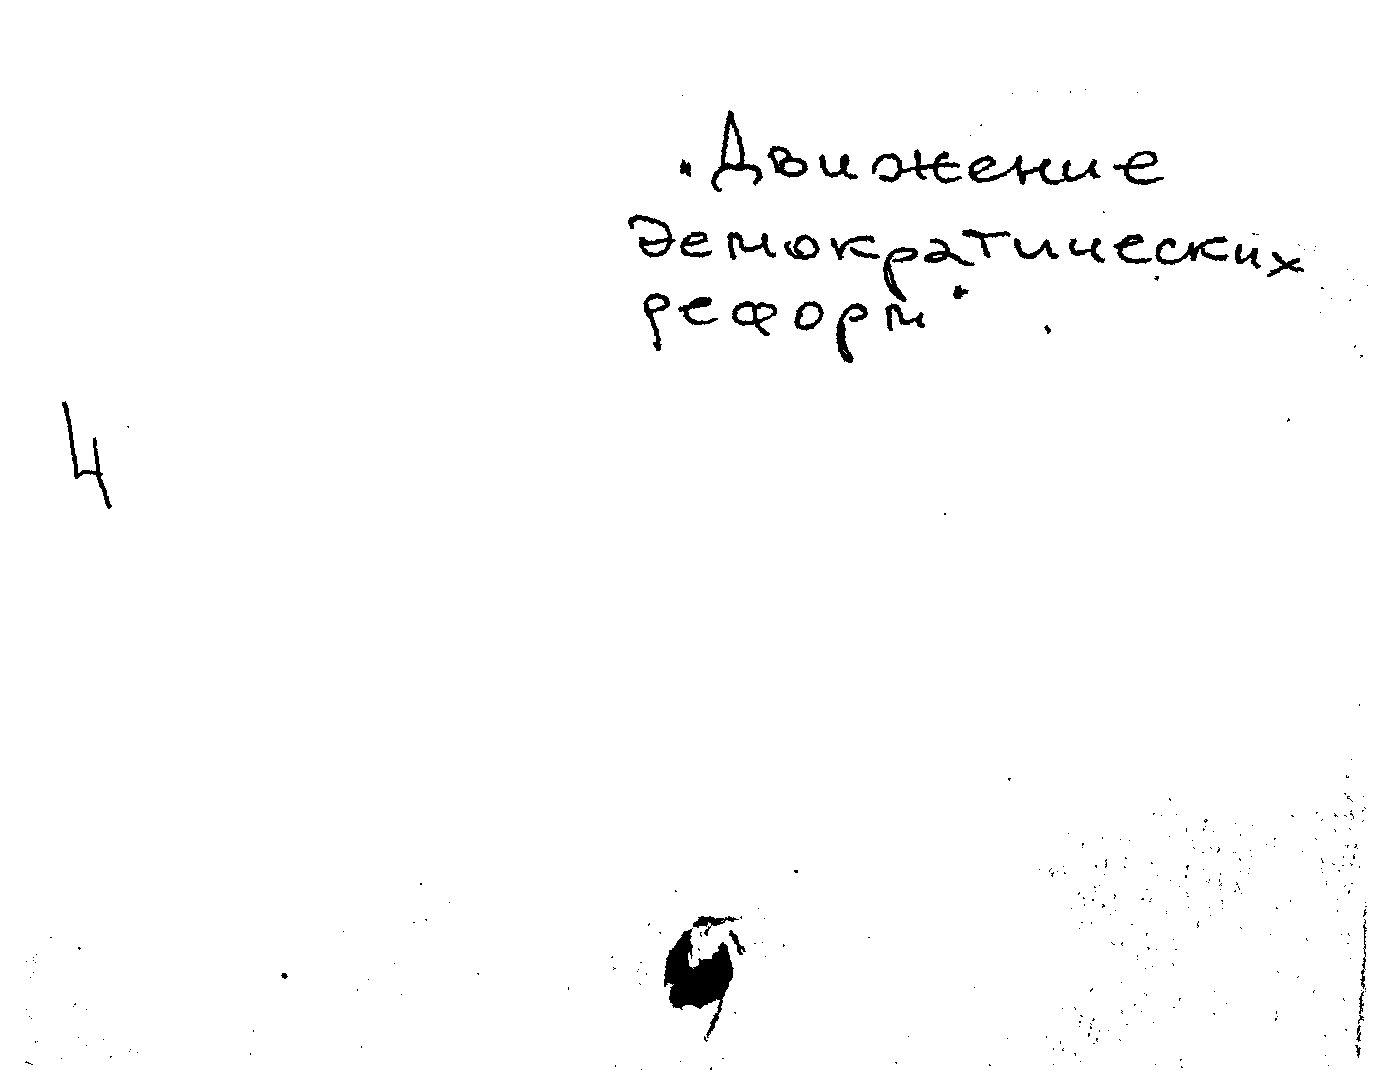 "Движение
демократических
реформ"
4